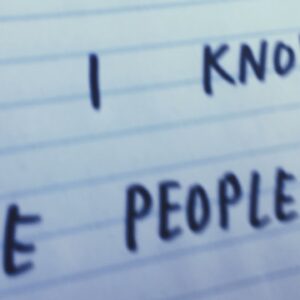 I KNO
E PEOPLE